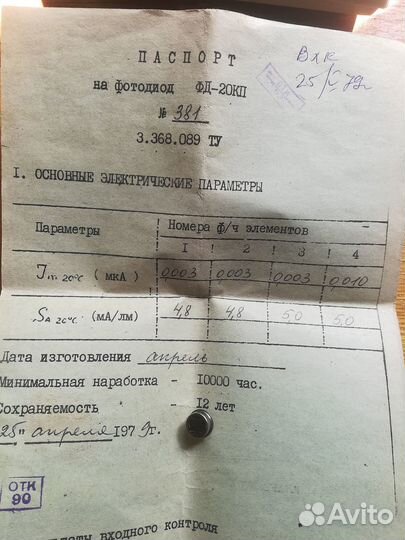 ПАСПОРТ
Вхк
25/V 79г
на фотодиод ФД-20КП
№ 381
3.368.089 ТУ
I. ОСНОВНЫЕ ЭЛЕКТРИЧЕСКИЕ ПАРАМЕТРЫ
Параметры Номера ф/ч элементов
I 2 3 4
20°С (мкА) 0,003 0,003 0,003 0,010
SА 20°С (мА/лм) 4,8 4,8 5,0 5,0
Дата изготовления апрель
Минимальная наработка - 10000 час.
Сохраняемость - 12 лет
"25" апреля 1979г.
ОТК
90
входного контроля
Avito